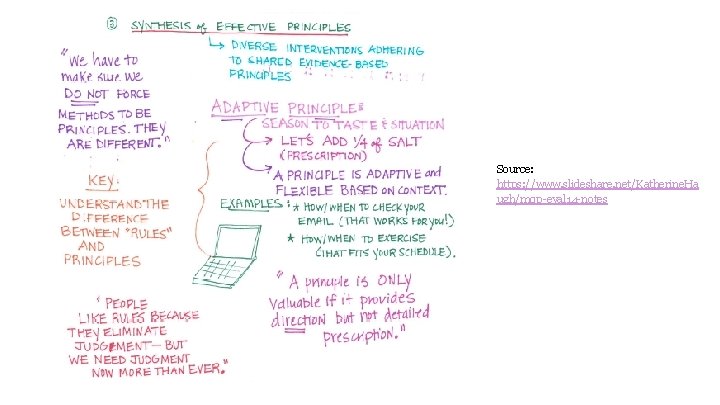 ③ SYNTHESIS of EFFECTIVE PRINCIPLES
↳ DIVERSE INTERVENTIONS ADHERING
TO SHARED EVIDENCE-BASED
PRINCIPLES
"We have to
make sure we
DO NOT FORCE
METHODS TO BE
PRINCIPLES. THEY
ARE DIFFERENT."
KEY:
UNDERSTAND THE
DIFFERENCE
BETWEEN "RULES"
AND
PRINCIPLES
"PEOPLE
LIKE RULES BECAUSE
THEY ELIMINATE
JUDGEMENT — BUT
WE NEED JUDGMENT
NOW MORE THAN EVER."
ADAPTIVE PRINCIPLE:
SEASON TO TASTE & SITUATION
LET'S ADD 1/4 of SALT
(PRESCRIPTION)
A PRINCIPLE IS ADAPTIVE and
FLEXIBLE BASED ON CONTEXT.
EXAMPLES: * HOW/WHEN TO CHECK YOUR
EMAIL (THAT WORKS FOR YOU!)
* HOW/WHEN TO EXERCISE
(THAT FITS YOUR SCHEDULE).
"A principle is ONLY
valuable if it provides
direction but not detailed
prescription."
Source:
https://www.slideshare.net/KatherineHa
ugh/mqp-eval14-notes